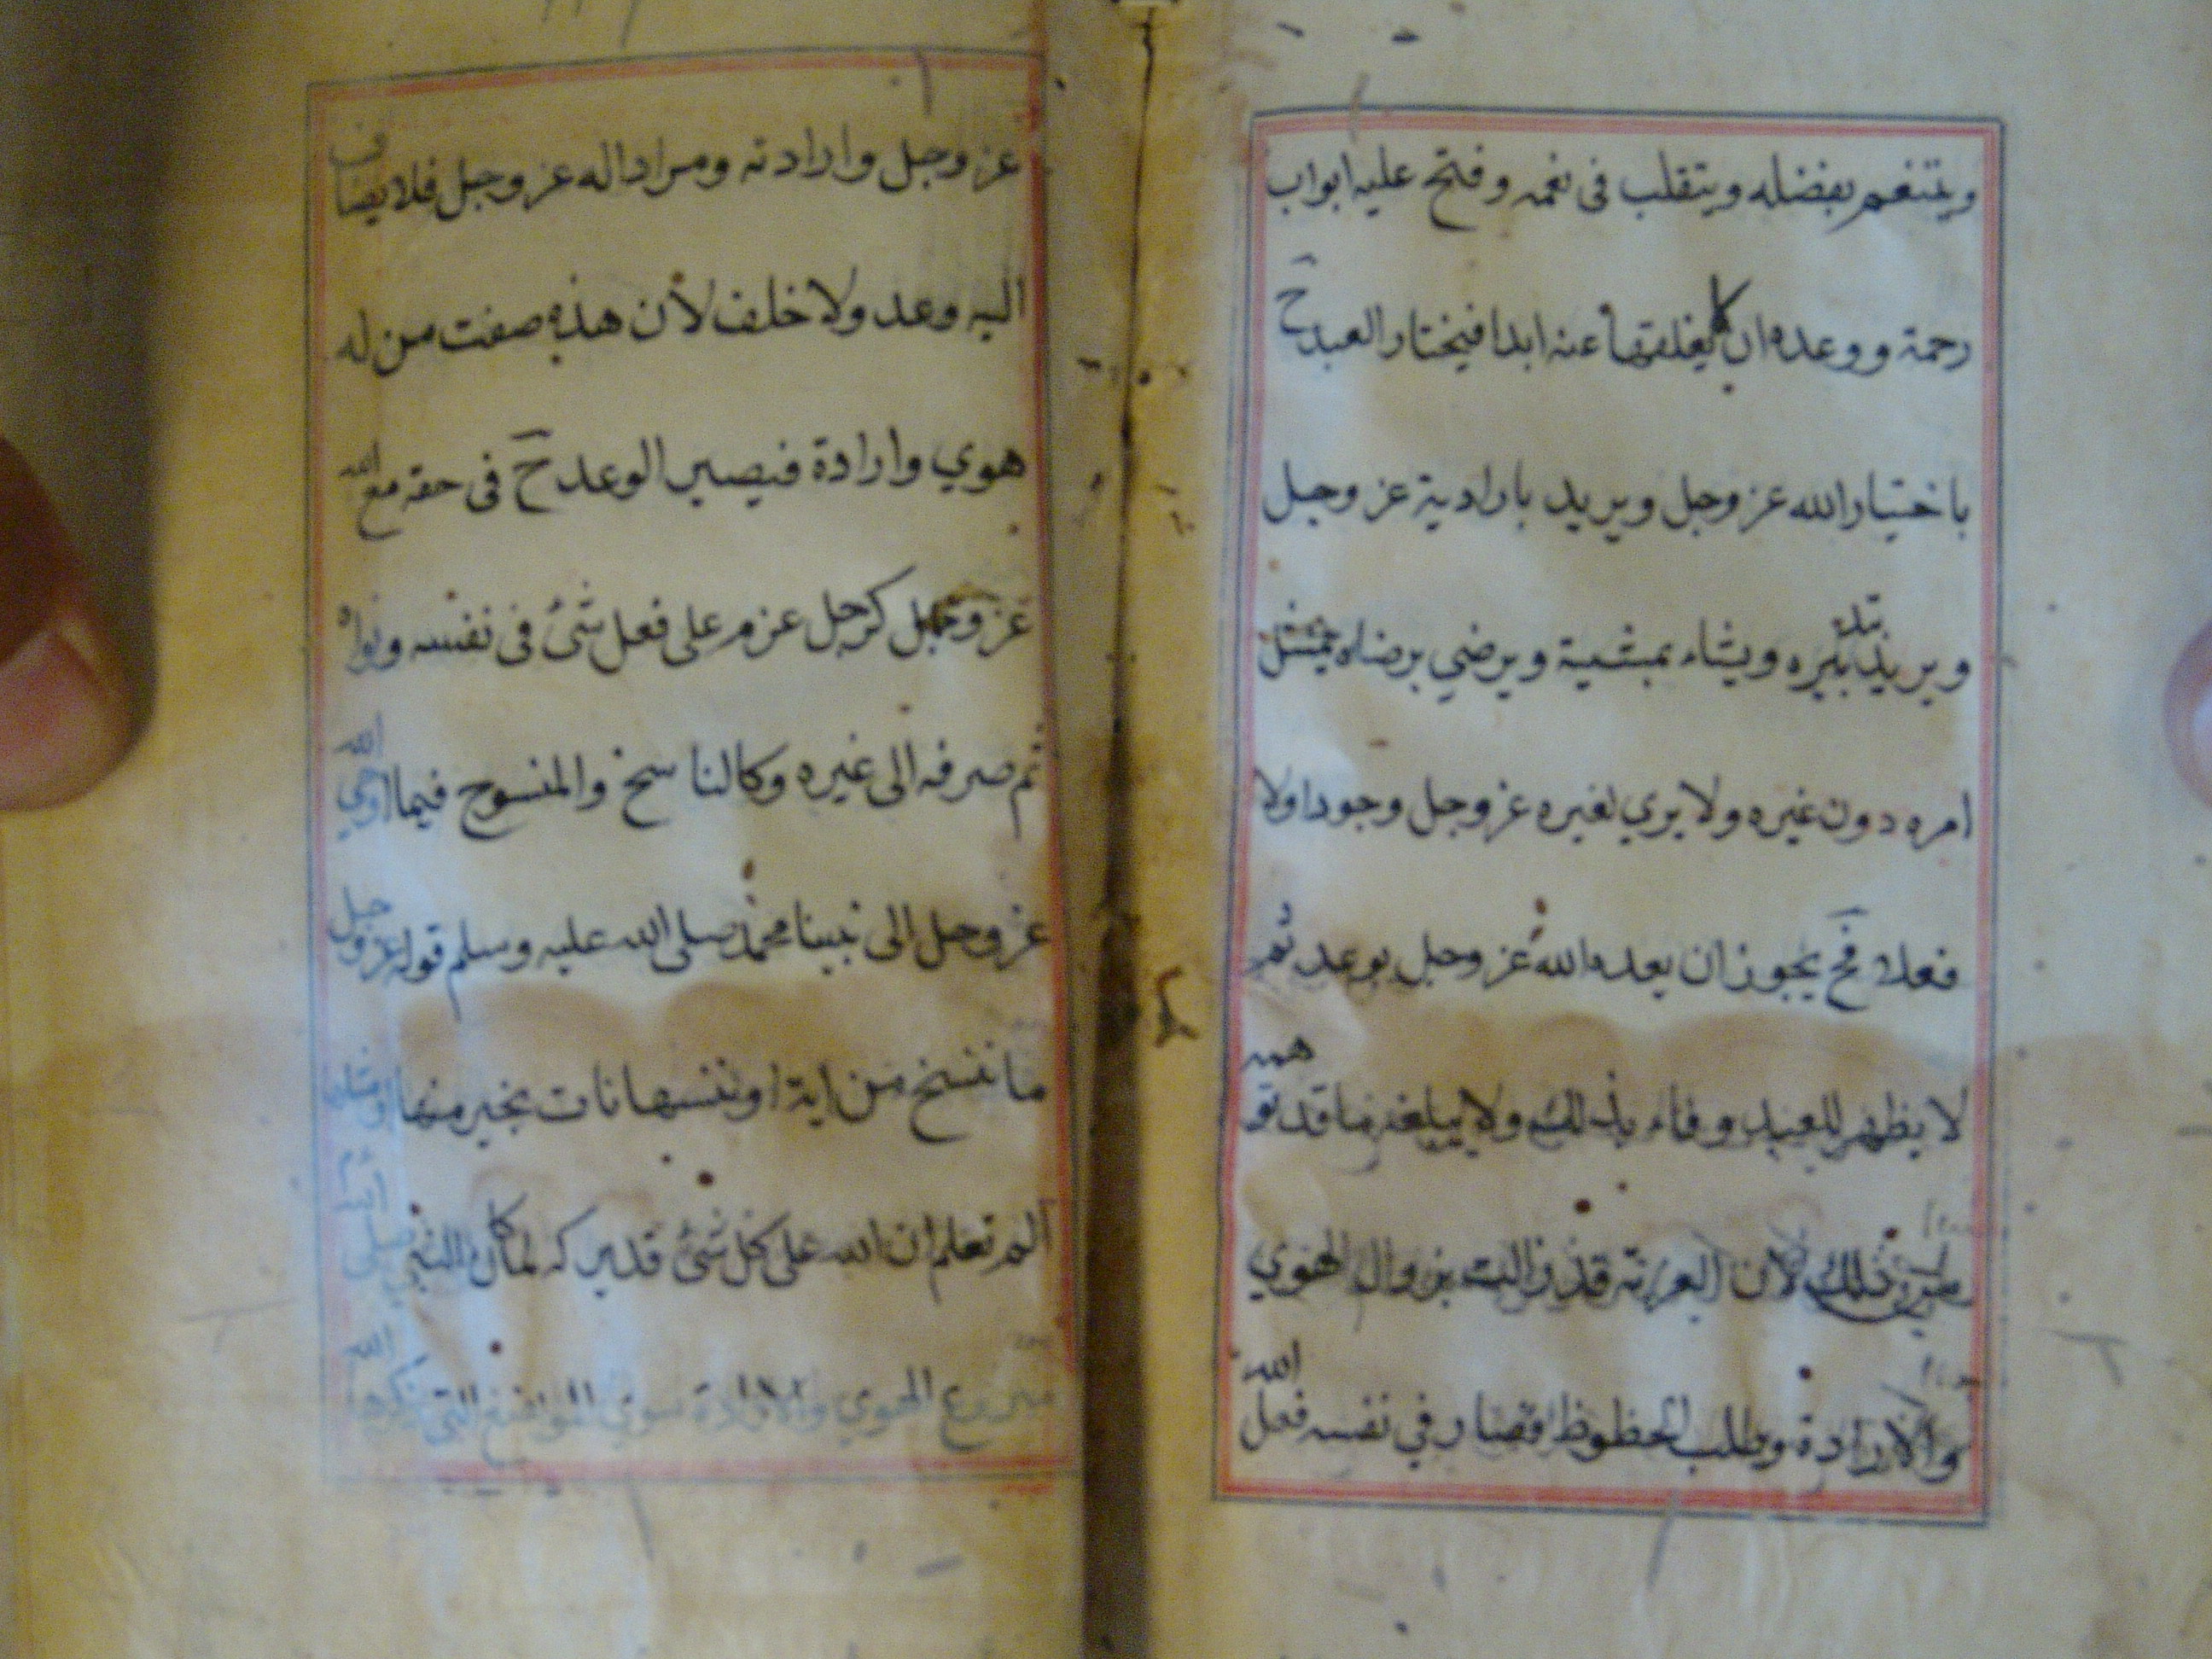 ويتنعم بفضله ويتقلب فى نعمه وفتح عليه ابواب
رحمة ووعده ان لا يغلقها عنه ابدا فيختار العبد ح
باختيار الله عز وجل ويريد بارادية عز وجل
ويريد بتدبيره ويشاء بمشية ويرضي برضاه يمتثل
امره دون غيره ولا يري لغيره عز وجل وجودا ولا
فعلا فح يجوز ان يعده الله عز وجل بوعد ثم
لا يظهر للعبد وفاء بذلك ولا يبلغه ما قد توهمه
من ذلك لان الغيرية قد زالت بزوال الهوي
والارادة وطلب الحظوظ فصار في نفسه فعل الله
عز وجل وارادته ومراداله عز وجل فلا يضاف
اليه وعد ولا خلف لأن هذه صفت من له
هوي وارادة فيصير الوعد ح فى حقه مع الله
عز وجل كرجل عزم على فعل شئ فى نفسه ونواه
ثم صرفه الى غيره وكالناسخ والمنسوخ فيما اوحي الله
عز وجل الى نبينا محمد صلى الله عليه وسلم قوله عز وجل
ما ننسخ من اية او ننسها نات بخير منها او مثلها
الم تعلم ان الله على كل شئ قدير كه لما كان النبي صلى
منزوع الهوي والارادة سوي المواضع التي ذكرها الله